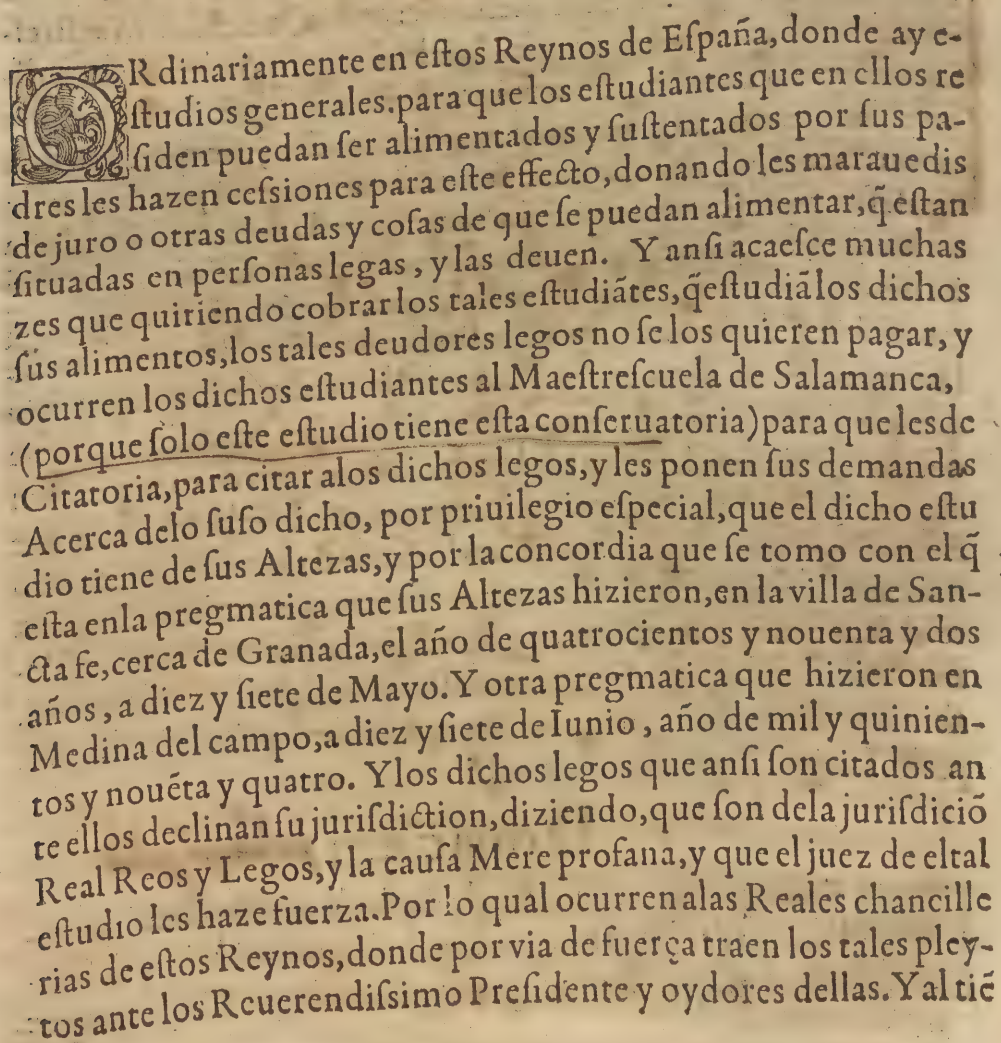 ORdinariamente en eſtos Reynos de Eſpaña,donde ay e-
ſtudios generales.para que los eſtudiantes que en ellos re
ſiden puedan ſer alimentados y ſuſtentados por ſus pa-
dres les hazen ceſsiones para eſte effecto,donando les marauedis
de juro o otras deudas y coſas de que ſe puedan alimentar,q̃ eſtan
ſituadas en perſonas legas, y las deuen. Y anſi acaeſce muchas
zes que quiriendo cobrar los tales eſtudiãtes,q̃eſtudiã los dichos
ſus alimentos,los tales deudores legos no ſe los quieren pagar, y
ocurren los dichos eſtudiantes al Maeſtreſcuela de Salamanca,
(porque ſolo eſte eſtudio tiene eſta conſeruatoria)para que les de
Citatoria,para citar alos dichos legos,y les ponen ſus demandas
Acerca delo ſuſo dicho, por priuilegio eſpecial,que el dicho eſtu
dio tiene de ſus Altezas,y por la concordia que ſe tomo con el q̃
eſta enla pregmatica que ſus Altezas hizieron,en la villa de San-
cta fe,cerca de Granada,el año de quatrocientos y nouenta y dos
años, a diez y ſiete de Mayo.Y otra pregmatica que hizieron en
Medina del campo,a diez y ſiete de Iunio, año de mil y quinien-
tos y nouẽta y quatro. Y los dichos legos que anſi ſon citados an
te ellos declinan ſu juriſdiction,diziendo,que ſon dela juriſdiciõ
Real Reos y Legos,y la cauſa Mere profana,y que el juez de el tal
eſtudio les haze fuerza.Por lo qual ocurren alas Reales chancille
rias de eſtos Reynos,donde por via de fuerça traen los tales pley-
tos ante los Reuerendiſsimo Preſidente y oydores dellas.Y al tiẽ